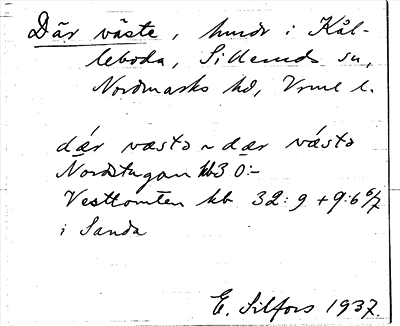 Där väste, hmdr i Kål-
leboda, Sillerud sn,
Nordmarks hd, Vrml l.
dǽr væstə ~ dær vǽstə
Nordstugan kb 3 0:-
Vesttomten kb 32:9 + 9:6 6/7
i Sanda
E. Silfors 1937.